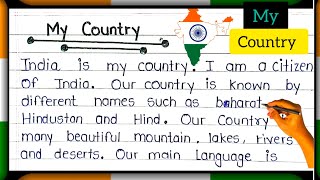 My Country
My
Country
India is my country. I am a Citizen
of India. Our country is known by
different names such as bharat
Hindustan and Hind. Our Country
many beautiful mountain, lakes, rivers
and deserts. Our main language is